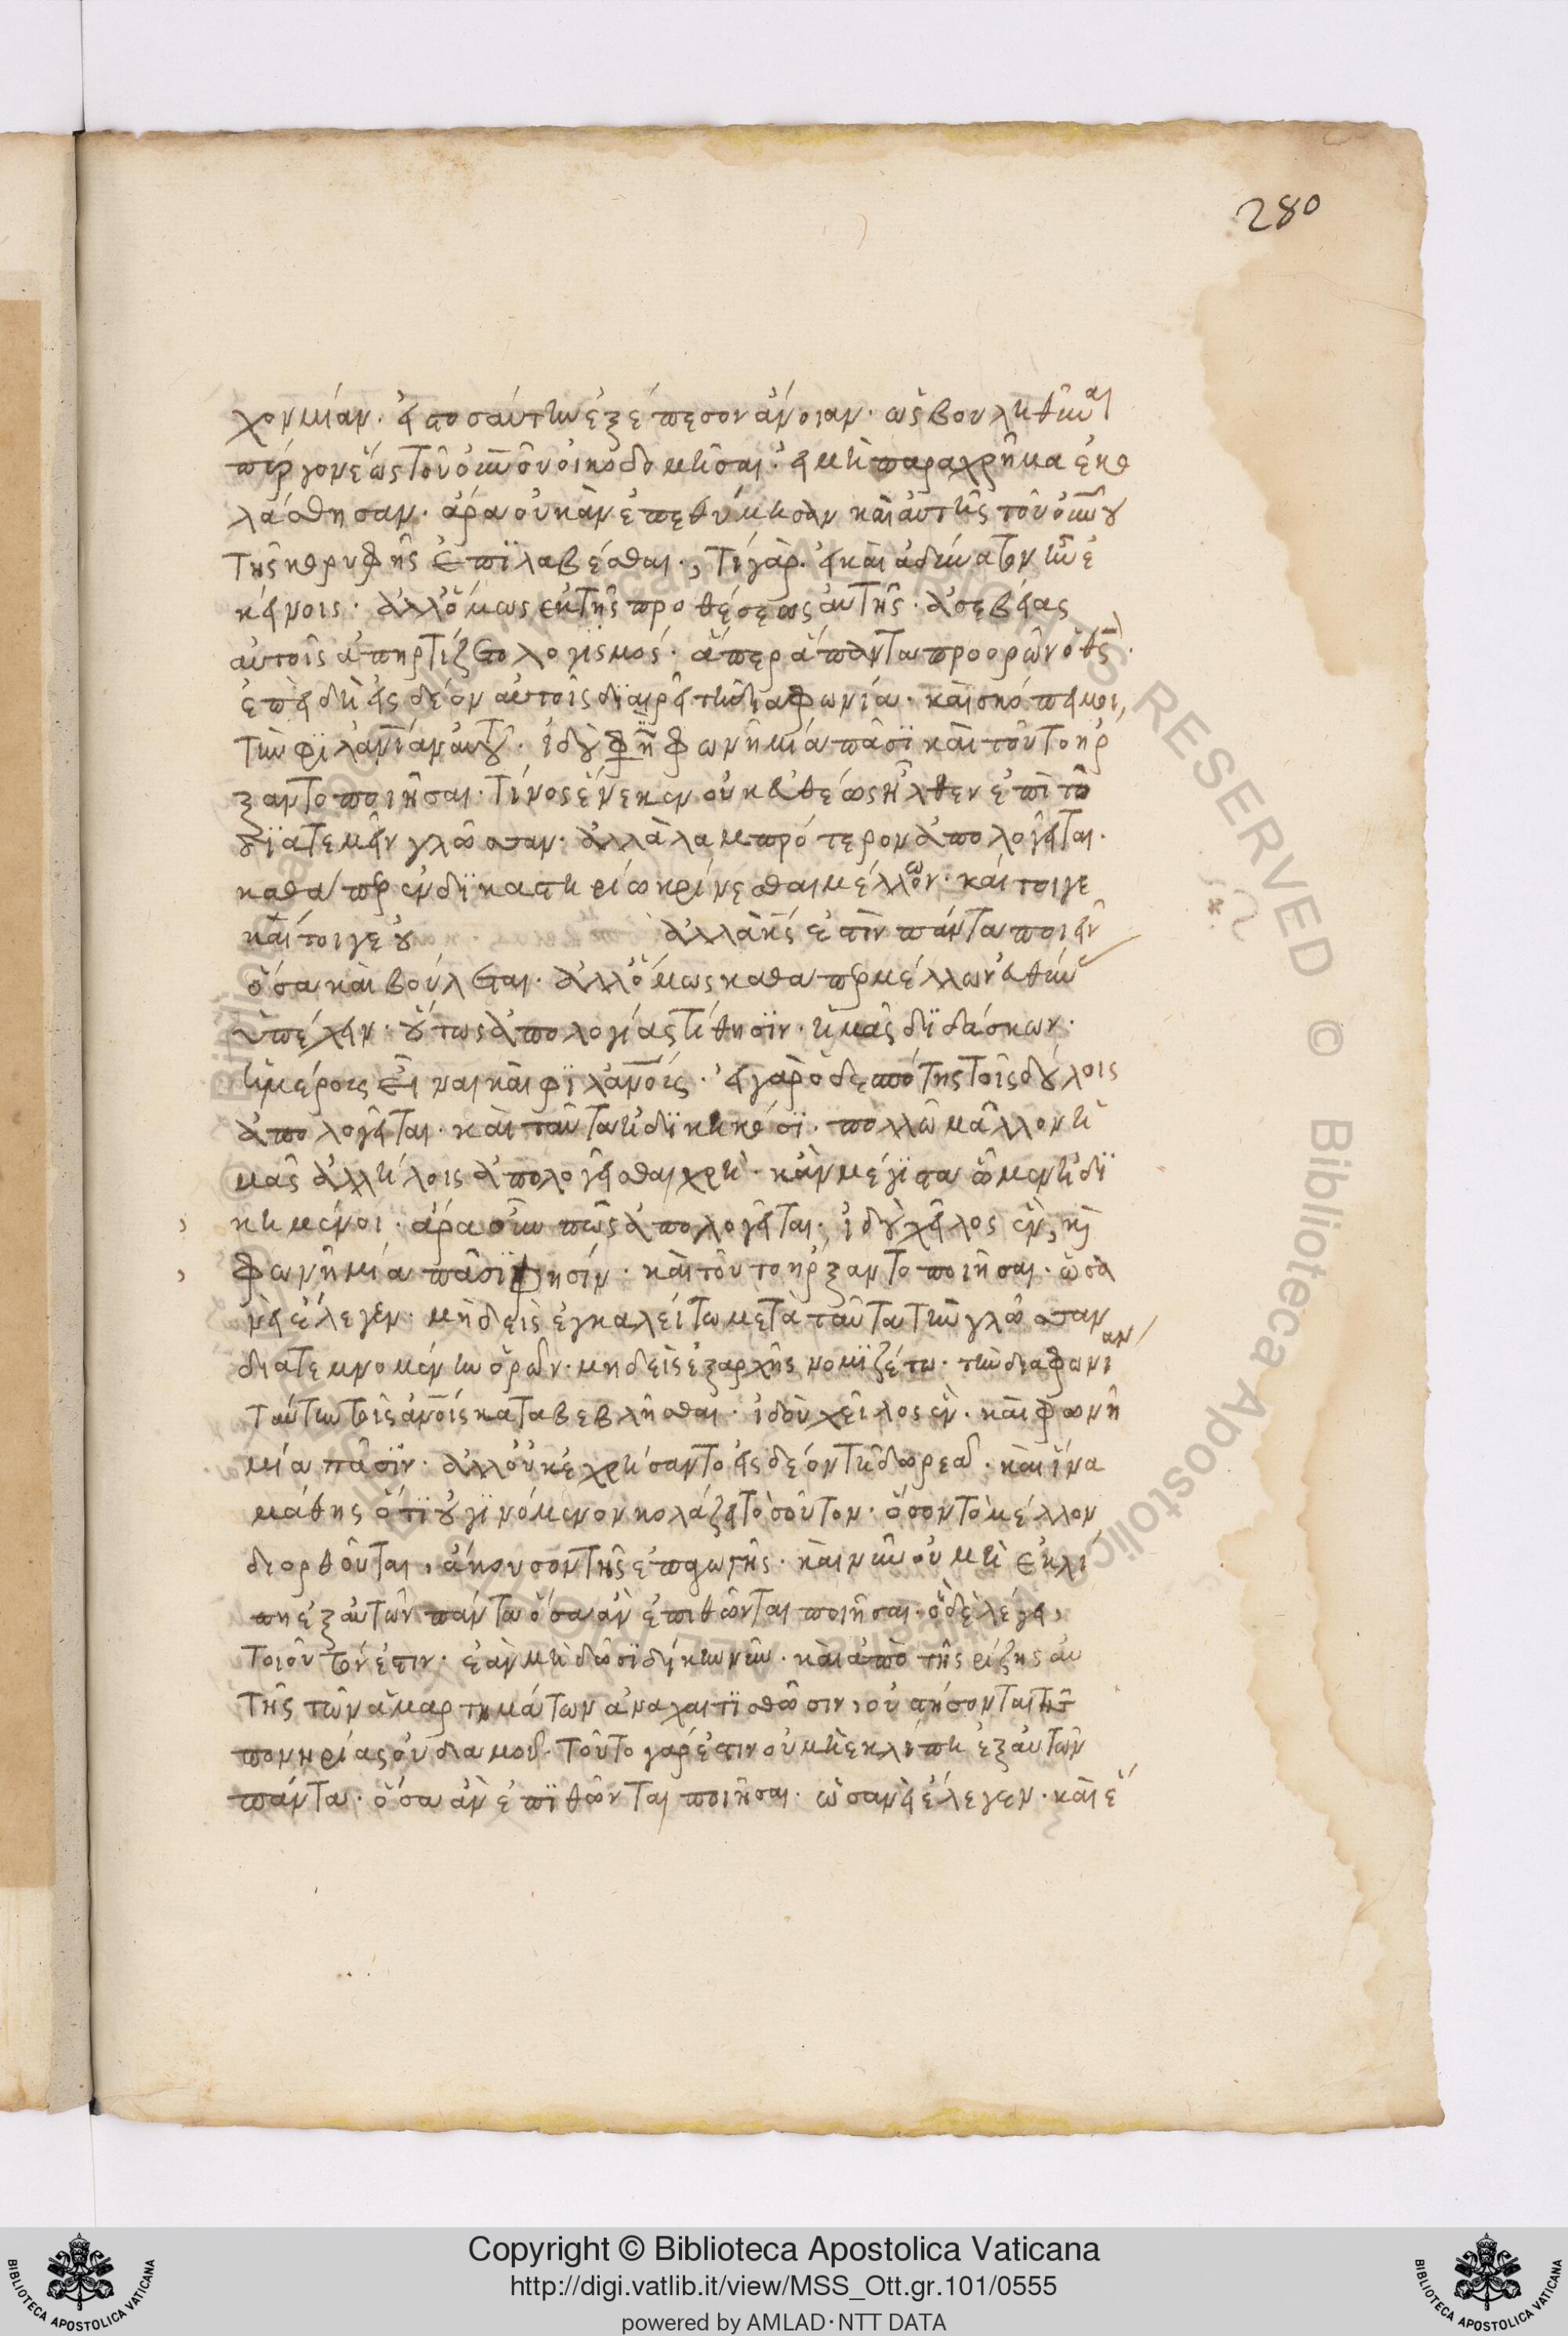 280
χονμίαν· εἰ τοσαύτην ἐξέπεσον ἄνοιαν· ὡς βουληθῆναι
πύργον ἕως τοῦ οὐνοῦ οἰκοδομῆσαι· εἰ μὴ παραχρῆμα ἐκο
λάσθησαν· ἄρα οὐκ ἂν ἐπεθύμησαν καὶ αὐτῆς τοῦ οὐνοῦ
τῆς κορυφῆς ἐπϊλαβέσθαι., τί γάρ· εἰ καὶ ἀδύνατον ἦν ἐ
κείνοις· ἀλλ' ὅμως ἐκ τῆς προθέσεως αὐτῆς· ἀσεβείας
αὐτοῖς ἀπηρτίζετο λογϊσμός· ἅπερ ἅπαντα προορῶν ὁ θς·
ἐπειδὴ εἰς δέον αὐτοῖς διαιρεῖ τῇ διαφωνία· καὶ σκόπει μοι,
τὴν φϊλανίαν αὐτοῦ· ἰδοὺ φη φωνὴ μία πᾶσϊ καὶ τοῦτο ἤρ
ξαντο ποιῆσαι· τίνος ἕνεκεν οὐκ εὐθέως ἦλθεν ἐπὶ τὸ
διατεμεῖν γλῶσσαν· ἀλλὰ λα μπρότερον ἀπολογεῖται·
καθάπερ ἐν δϊκαστηρίω κρίνεσθαι μέλλων· καίτοιγε
καίτοιγε οὐ ἀλλὰ κς ἐστὶν πάντα ποιεῖν
ὅσα καὶ βούλεται· ἀλλ' ὅμως καθάπερ μέλλων εὐθύν
ὑπέχειν· οὕτως ἀπολογίας τίθησϊν· ἡμᾶς δϊδάσκων·
ἡμέρους εἶναι καὶ φϊλανους· εἰ γὰρ ὁ δεσπότης τοῖς δούλοις
ἀπολογεῖται· καὶ ταῦτα ἠδϊκηκόσϊ· πολλῶ μᾶλλον ἡ
μᾶς ἀλλήλοις ἀπολογεῖσθαι χρή· κἂν μέγϊστα ὦμεν ἠδϊ
κημένοι· ἄρα οὖν πῶς ἀπολογεῖται· ἰδοὺ χεῖλος ἓν, κὶ
φωνὴ μία πᾶσϊ φησίν· καὶ τοῦτο ἤρξαντο ποιῆσαι· ὡσα
νεὶ ἔλεγεν· μηδεὶς ἐγκαλείτω μετὰ ταῦτα τὴν γλῶσσαν
διατεμνομένην ὁρῶν· μηδεὶς ἐξαρχῆς νομϊζέτω· τὴν διαφωνίαν
ταύτην τοῖς ανοις καταβεβλῆσθαι· ἰδοὺ χεῖλος ἓν· καὶ φωνὴ
μία πᾶσϊν· ἀλλ' οὐκ ἐχρήσαντο εἰς δέον τῇ δωρεᾶ· καὶ ἵνα
μάθης ὅτϊ οὐ γϊνόμενον κολάζει τοσοῦτον· ὅσον τὸ μέλλον
διορθοῦται, ἄκουσον τῆς ἐπαγωγῆς· καὶ νῦν οὐ μὴ ἐκλί
πη ἐξ αὐτῶν πάντα ὅσα ἂν ἐπιθῶνται ποιῆσαι· ὃ δὲ λέγει,
τοιοῦτόν ἐστιν· ἐὰν μὴ δῶσϊ δίκην νῦν· καὶ ἀπὸ τῆς ρίζης αὐ
τῆς τῶν ἁμαρτημάτων ἀναχαιτϊσθῶσιν, οὐ στήσονται τῆς
πονηρίας οὐδαμοῦ· τοῦτο γάρ ἐστιν οὐ μὴ ἐκλίπη ἐξ αὐτῶν
πάντα· ὅσα ἂν ἐπϊθῶνται ποιῆσαι· ὡσανεὶ ἔλεγεν· καὶ ἕ
Copyright © Biblioteca Apostolica Vaticana
http://digi.vatlib.it/view/MSS_Ott.gr.101/0555
powered by AMLAD·NTT DATA